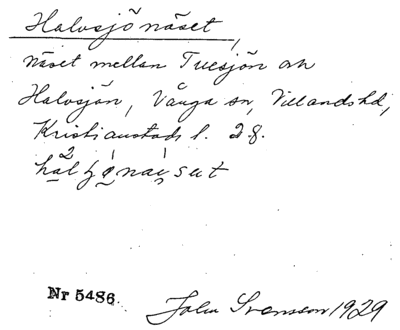 Halvsjönäset,
näset mellan Tuesjön och
Halvsjön, Vånga sn, Villands hd,
Kristianstads l. 28.
Nr 5486.
John Svensson 1929